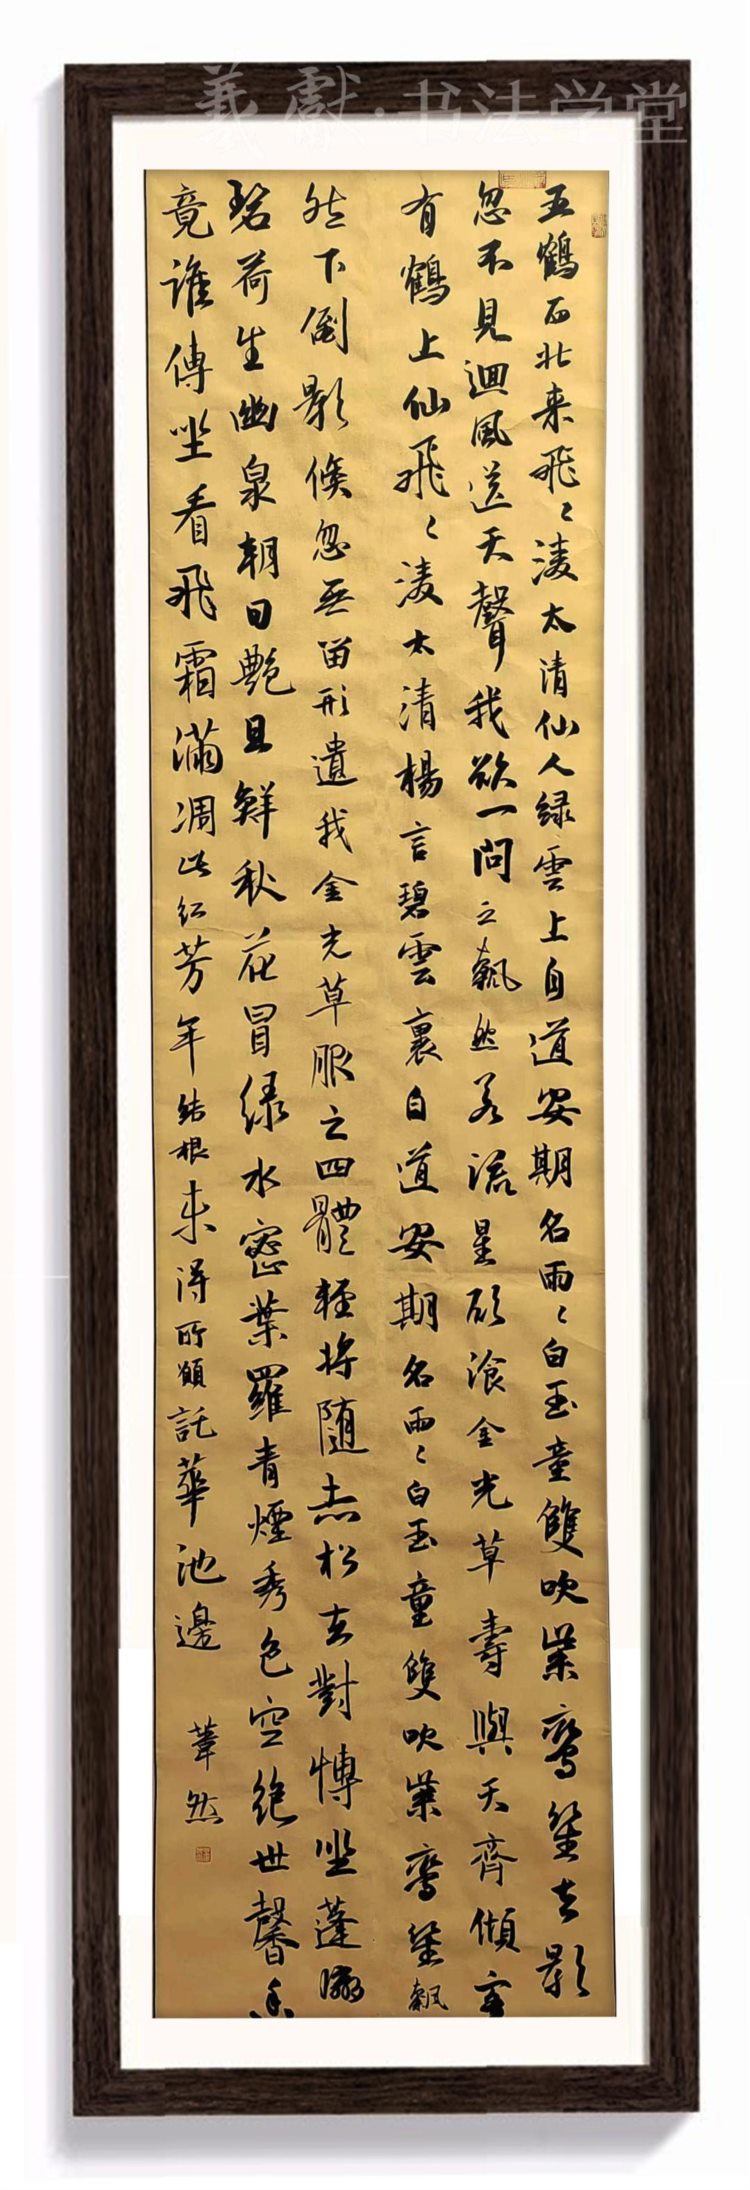 羲獻·书法学堂
五鶴西北来飛〻淩太清仙人緑雲上自道安期名兩〻白玉童雙吹紫鸞笙去影
忽不見迴風送天聲我欲一問之飄然若流星願飡金光草壽與天齊傾客
有鶴上仙飛〻淩太清楊言碧雲裏自道安期名兩〻白玉童雙吹紫鸞笙飄
然下倒影倏忽無留形遺我金光草服之四體輕将随赤松去對愽坐蓬瀛
碧荷生幽泉朝日艷且鮮秋花冒緑水密葉羅青煙秀色空絶世馨香
竟誰傳坐看飛霜滿凋此紅芳年結根未得所願託華池邊
葦然